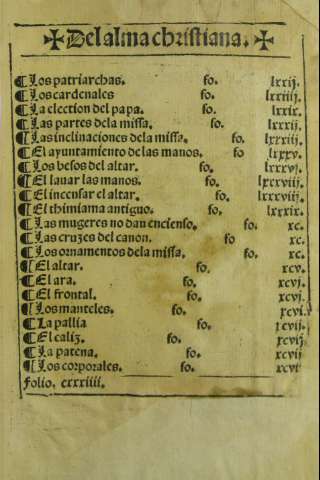 ✠ Del alma christiana. ✠
¶ Los patriarchas. fo. lxxij.
¶ Los cardenales fo. lxxiiij.
¶ La election del papa. fo. lxxix.
¶ Las partes dela missa. fo. lxxxij.
¶ Las inclinaciones dela missa. fo. lxxxiij.
¶ El ayuntamiento delas manos. fo lxxxv.
¶ Los besos del altar. fo. lxxxvj.
¶ El lauar las manos. fo. lxxxviij.
¶ El incensar el altar. fo. lxxxviij.
¶ El thimiama antiguo. fo. lxxxix.
¶ Las mugeres no dan encienso. fo. xc.
¶ Las cruzes del canon. fo xc.
¶ Los ornamentos dela missa. fo. xc.
¶ El altar. fo. xcv.
¶ El ara. fo. xcvj.
¶ El frontal. fo. xcvj.
¶ Los manteles. fo. xcvi.
¶ La pallia fo. xcvij.
¶ El caliz. fo. xcvij
¶ La patena. fo. xcvij
¶ Los corporales. fo. xcvi
folio. cxxxiiij.